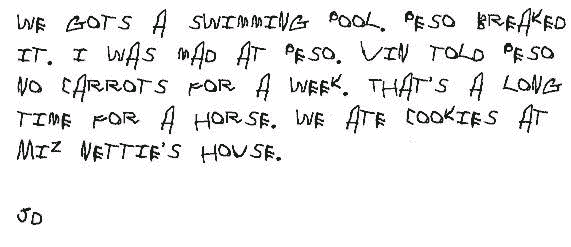 WE GOTS A SWIMMING POOL. PESO BREAKED
IT. I WAS MAD AT PESO. VIN TOLD PESO
NO CARROTS FOR A WEEK. THAT'S A LONG
TIME FOR A HORSE. WE ATE COOKIES AT
MIZ NETTIE'S HOUSE.
JD